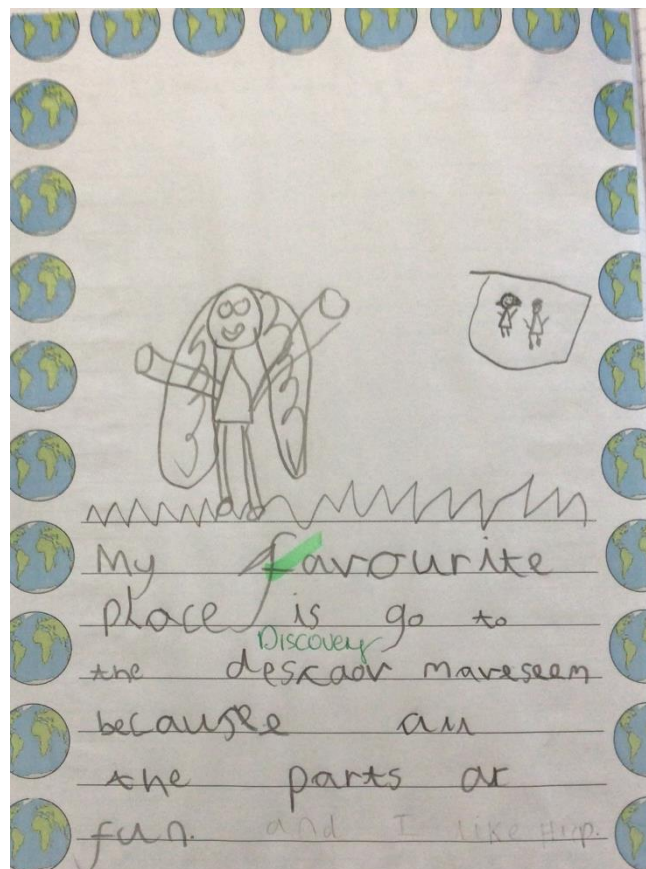 My favourite
place is go to
Discovery
the descaov mareseem
because all
the parts ar
fun. and I like